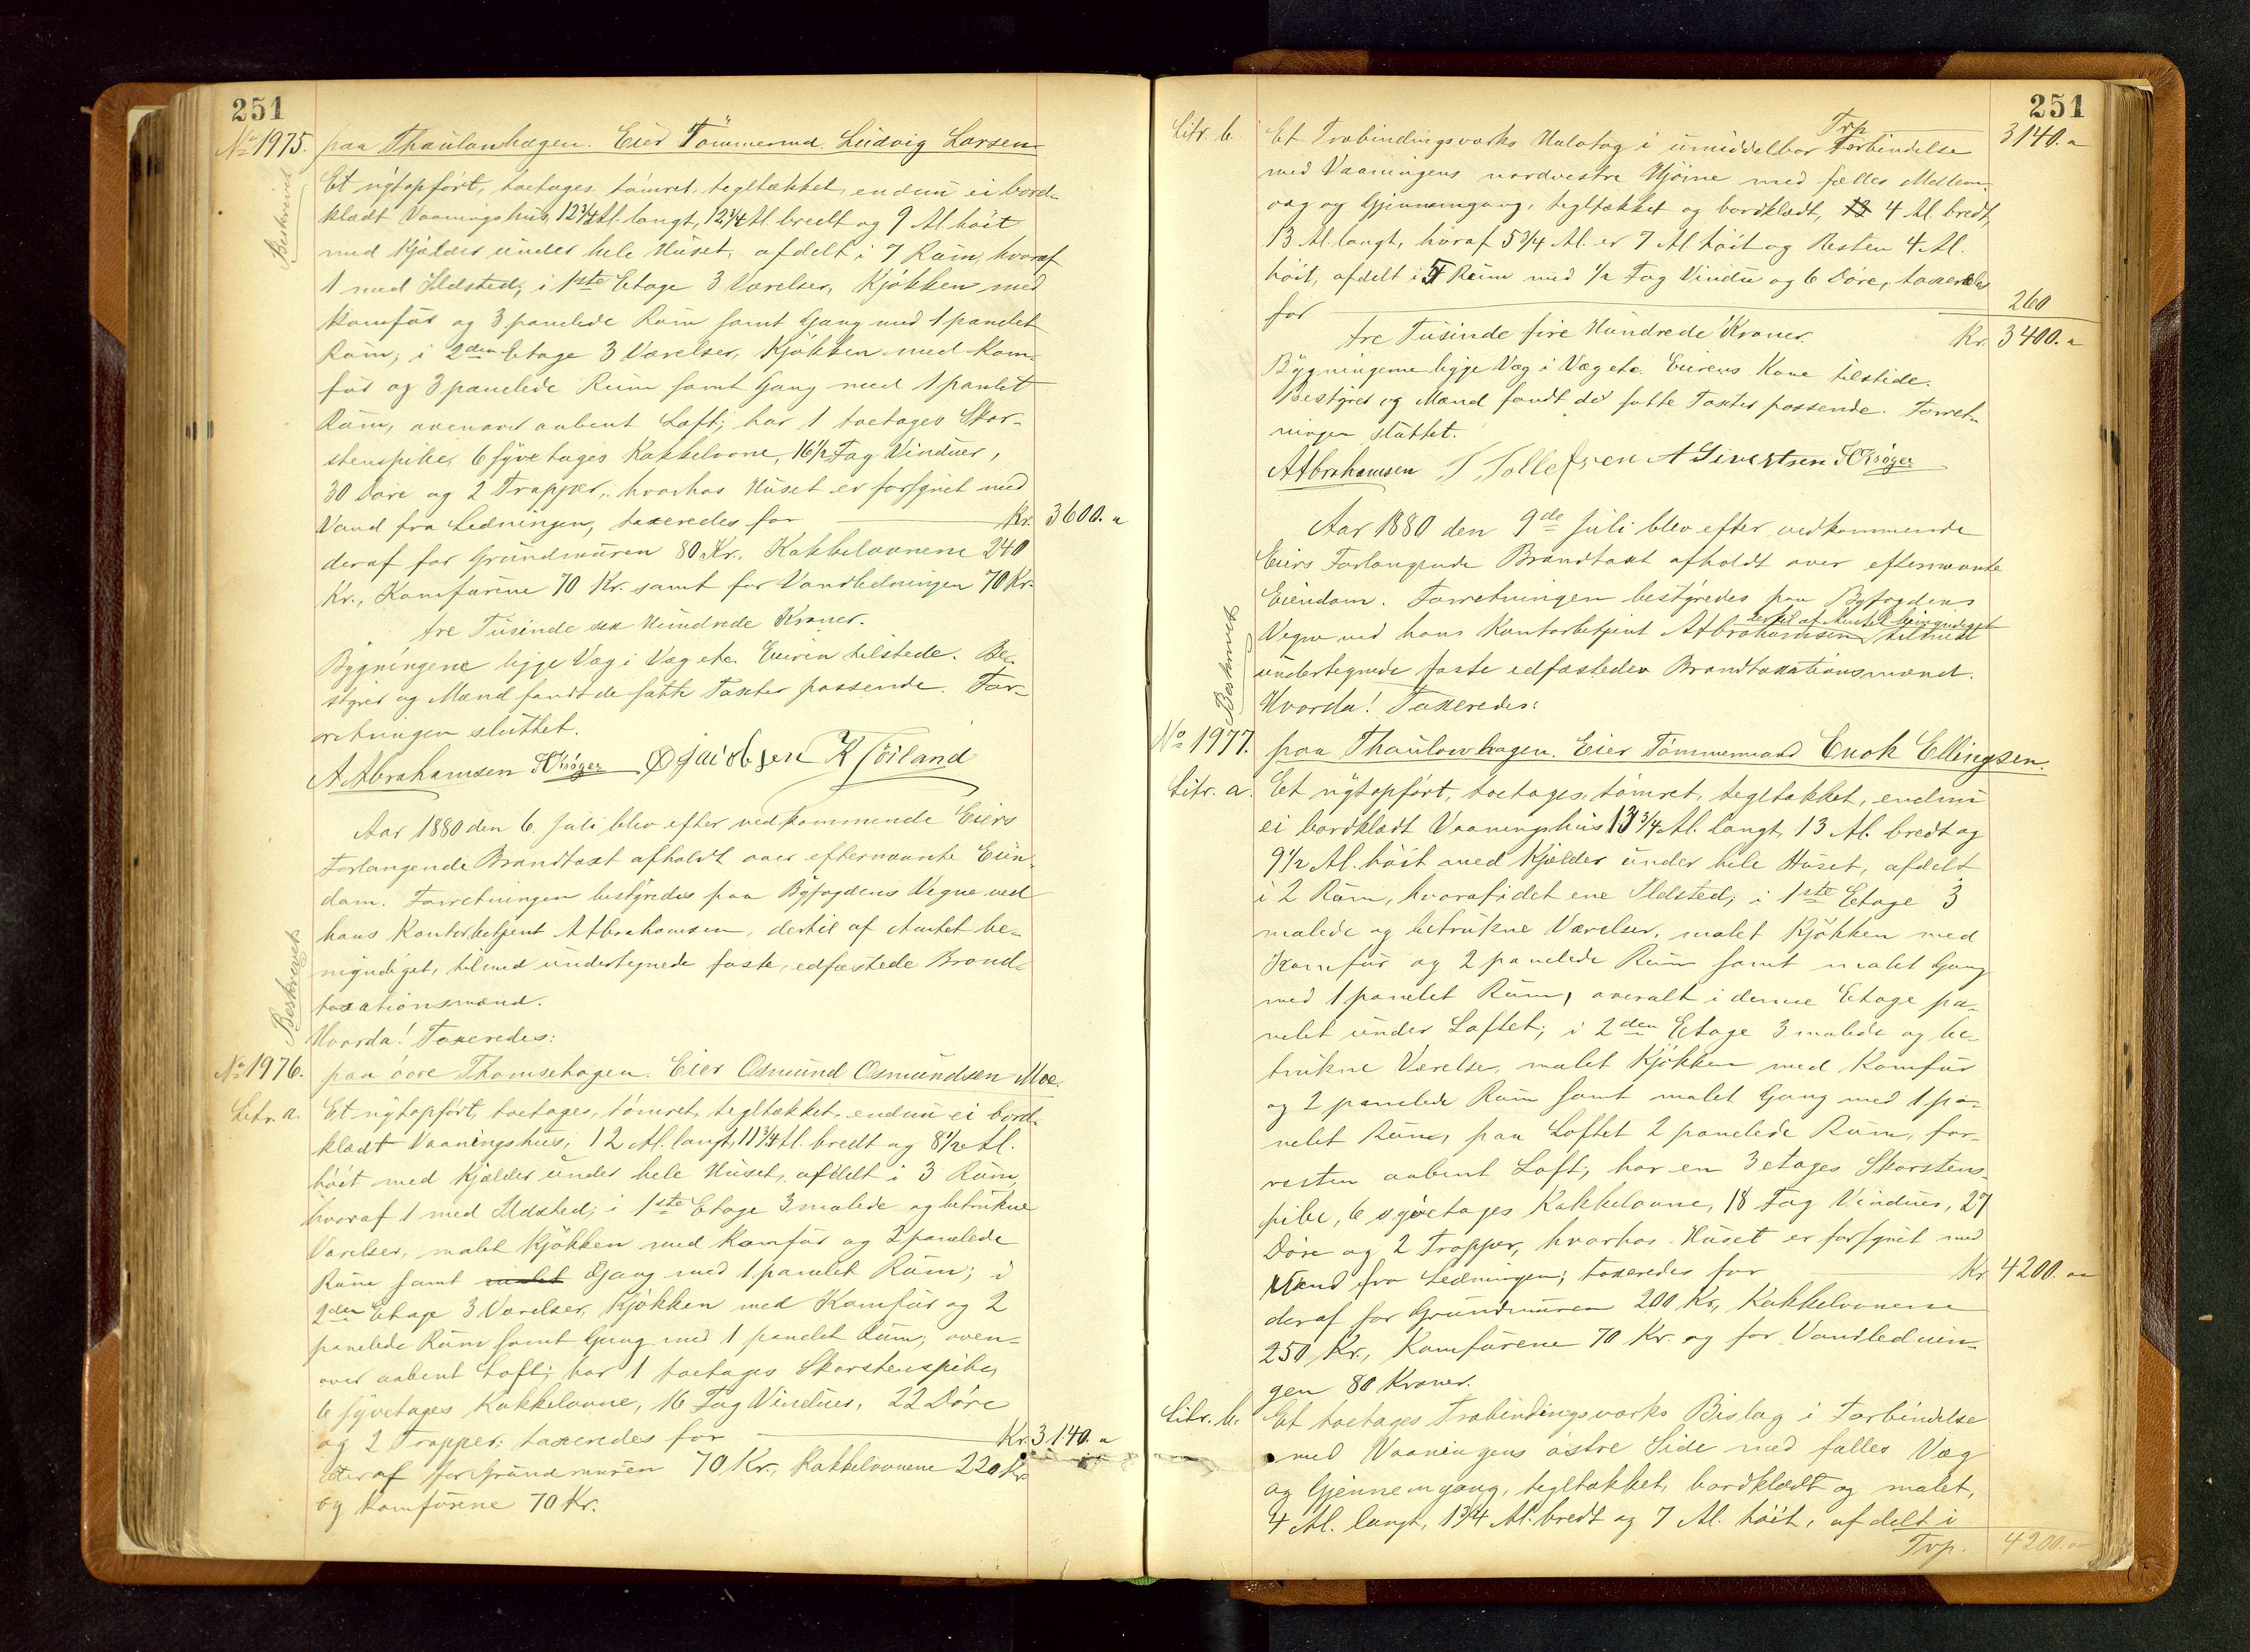 251
No 1975. paa Thaulowhagen. Eier Tömmermd. Ludvig Larsen
Beskrevet
Et nÿtopfört, toetages, tömret, tegltækket, endnu ei bord-
klædt Vaaningshus, 12 3/4 Al. langt, 12 1/4 Al. bredt og 9 Al. höit
med Kjælder under hele Huset, afdelt i 7 Rum, hvoraf
1 med Ildsted; i 1ste Etage 3 Værelser, Kjökken med
Komfur og 3 panelede Rum samt Gang med 1 panelet
Rum; i 2den Etage 3 Værelser, Kjökken med Kom-
fur og 3 panelede Rum samt Gang med 1 panlet
Rum, ovenover aabent Loft; har 1 toetages Skor-
stenspibe, 6 syvetages Kakkelovne, 16 1/2 Fag Vinduer,
30 Döre og 2 Trapper, hvorhos Huset er forsynet med
Vand fra Ledningen, taxeredes for Kr. 3600. "
deraf for Grundmuren 80 Kr., Kakkelovnene 240
Kr., Komfurene 70 Kr. samt for Vandledningen 70 Kr.
tre Tusinde sex Hundrede Kroner.
Bygningene ligge Væg i Væg etc. Eieren tilstede. Be-
styrer og Mænd fandt de satte Taxter passende. For-
retningen sluttet.
A Abrahamsen SC Kröger O Jacobsen K Töiland
Aar 1880 den 6. Juli blev efter vedkommende Eiers
Forlangende Brandtaxt afholdt over efternævnte Eien-
dom. Forretningen bestyredes paa Byfogdens Vegne ved
hans Kontorbetjent A Abrahamsen, dertil af Amtet be-
myndiget, tilmed undertegnede faste, edfæstede Brand-
taxationsmænd.
Beskrevet
Hvorda! Taxeredes:
No 1976. paa övre Thomsehagen. Eier Osmund Osmundsen Moe.
Litr. a. Et nÿtopfört, toetages, tömret, tegltækket, endnu ei bord-
klædt Vaaningshus, 12 Al. langt, 11 3/4 Al. bredt og 8 1/2 Al.
höit med Kjælder under hele Huset, afdelt i 3 Rum,
hvoraf 1 med Ildsted; i 1ste Etage 3 malede og betrukne
Værelser, malet Kjökken med Komfur og 2 panelede
Rum samt malet Gang med 1 panelet Rum; i
2den Etage 3 Værelser, Kjökken med Komfur og 2
panelede Rum samt Gang med 1 panelet Rum; oven-
over aabent Loft; har 1 toetages Skorstenspibe,
6 syvetages Kakkelovne, 16 Fag Vinduer, 22 Döre
og 2 Trapper; taxeredes for Kr. 3140. "
deraf for Grundmuren 70 Kr., Kakkelovnene 220 Kr.
og Komfurene 70 Kr.
251
Trp 3140. "
Litr. b. Et Træbindingsværks Halvtag i umiddelbar Forbindelse
med Vaaningens nordvestre Hjörne med fælles Mellem-
væg og Gjennemgang, tegltækket og bordklædt, 4 Al. bredt,
13 Al. langt, hvoraf 5 3/4 Al. er 7 Al. höit og Resten 4 Al.
höit, afdelt i 5 Rum med 1/2 Fag Vindu og 6 Döre, taxeredes
for 260
tre Tusinde fire Hundrede Kroner. Kr. 3400. "
Bygningerne ligge Væg i Væg etc. Eierens Kone tilstede.
Bestyrer og Mænd fandt de satte Taxter passende. Forret-
ningen sluttet.
A Abrahamsen T. Tollefsen A Sivertsen SC Kröger
Aar 1880 den 9de Juli blev efter vedkommende
Eiers Forlangende Brandtaxt afholdt over efternævnte
Eiendom. Forretningen bestyredes paa Byfogdens
dertil af Amtet bemyndiget
Vegne ved hans Kontorbetjent A Abrahamsen, tilmed
undertegnede faste edfæstede Brandtaxationsmænd.
Beskrevet
Hvorda! Taxeredes:
No 1977. paa Thaulowhagen. Eier Tömmermand Enok Ellingsen.
Litr. a. Et nÿtopfört, toetages, tömret, tegltækket, endnu
ei bordklædt Vaaningshus 13 3/4 Al. langt, 13 Al. bredt og
9 1/2 Al. höit med Kjælder under hele Huset, afdelt
i 2 Rum, hvoraf i det ene Ildsted; i 1ste Etage 3
malede og betrukne Værelser, malet Kjökken med
Komfur og 2 panelede Rum samt malet Gang
med 1 panelet Rum, overalt i denne Etage pa-
nelet under Loftet; i 2den Etage 3 malede og be-
trukne Værelse, malet Kjökken med Komfur
og 2 panelede Rum samt malet Gang med 1 pa-
nelet Rum, paa Loftet 2 panelede Rum, for-
resten aabent Loft; har en 3 etages Skorstens-
pibe, 6 syvetages Kakkelovne, 18 Fag Vinduer, 27
Döre og 2 Trapper, hvorhos Huset er forsynet med
Vand fra Ledningen; taxeredes for Kr. 4200. "
deraf for Grundmuren 200 Kr., Kakkelovnene
250 Kr., Komfurene 70 Kr. og for Vandlednin-
gen 80 Kroner.
Litr. b. Et toetages Træbindingsværks Bislag i Forbindelse
med Vaaningens östre Side med fælles Væg
og Gjennemgang, tegltækket, bordklædt og malet,
4 Al. langt, 1 3/4 Al. bredt og 7 Al. höit, afdelt i
Trp. 4200. "